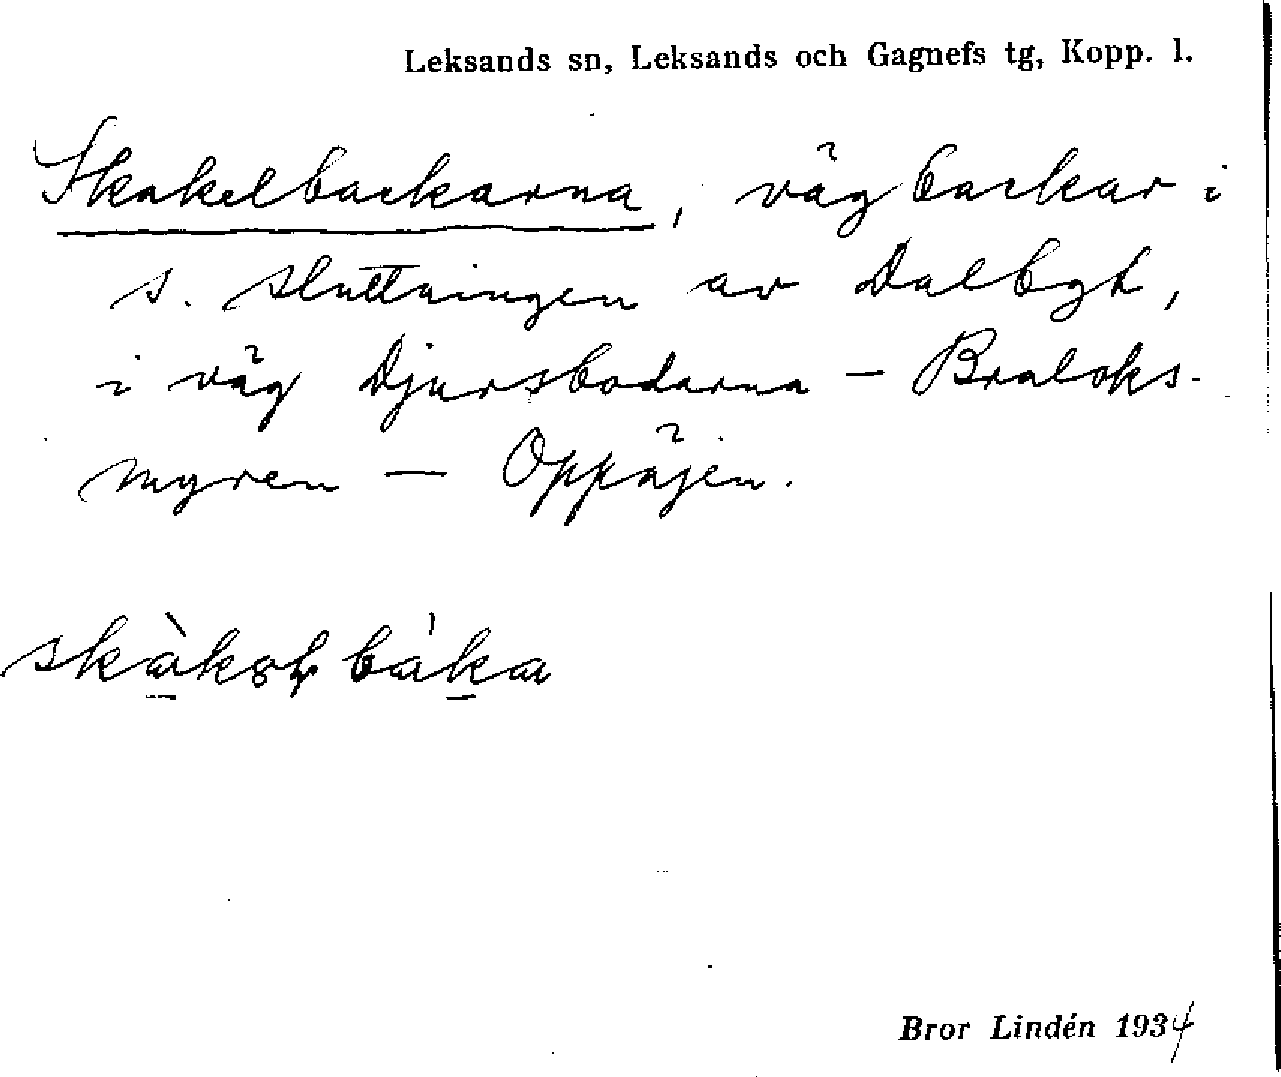 Leksands sn, Leksands och Gagnefs tg, Kopp. l.
Skakelbackarna, vägbackar i
s. sluttningen av Dalbgt,
i väg Djursbodarna – Braloks-
myren – Oppäjen.
skàkəl báka
Bror Lindén 1934